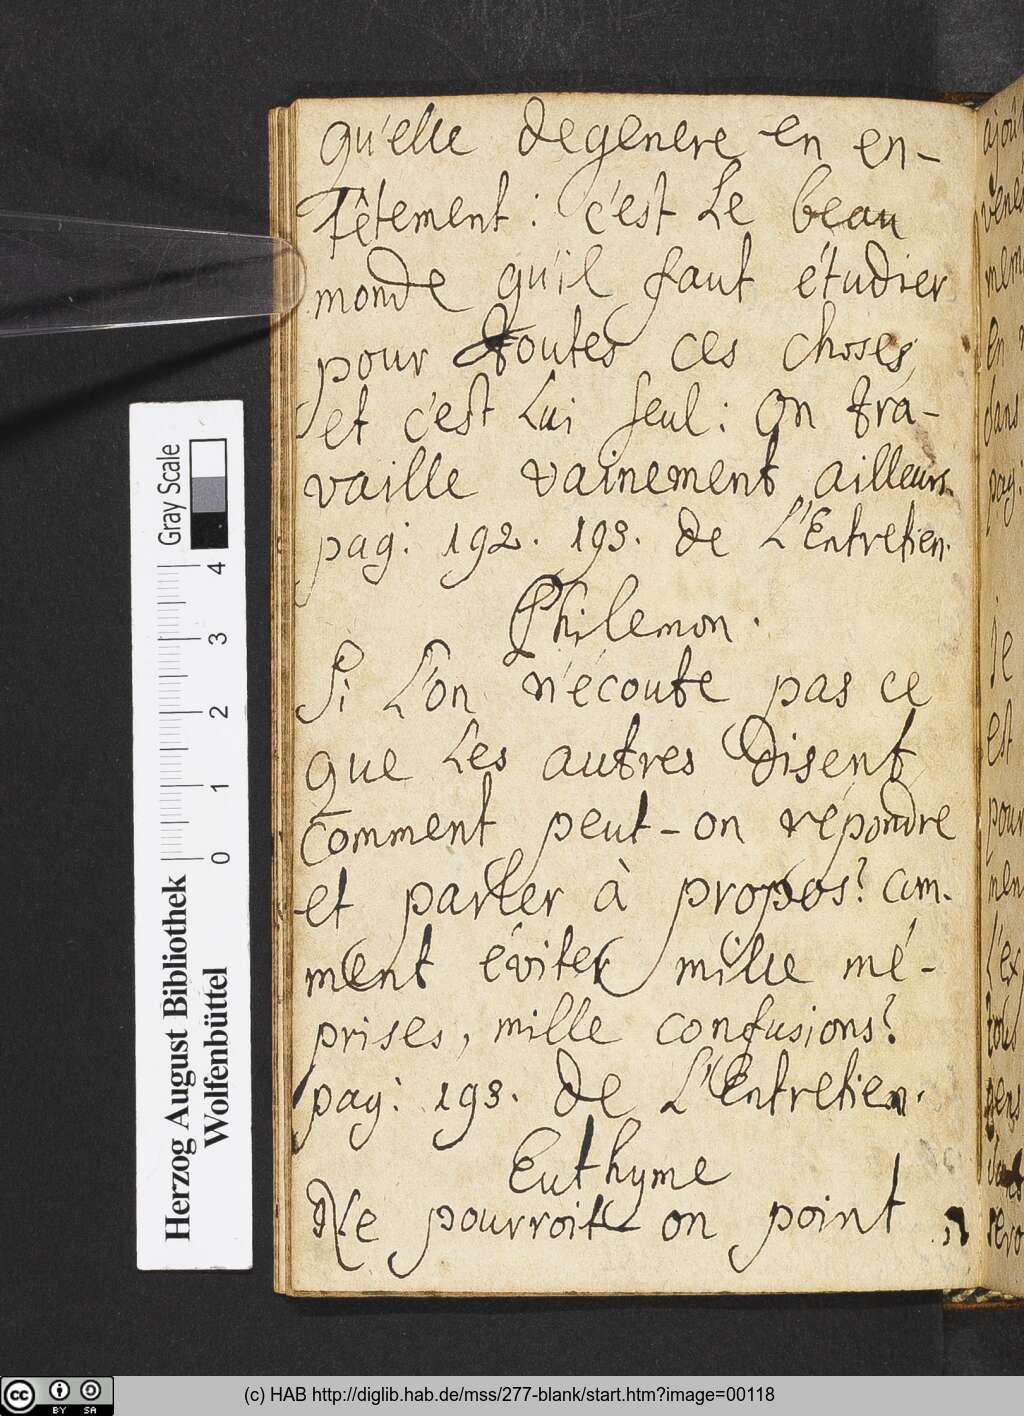 qu'elle degenere en en-
têtement : c'est Le beau
monde qu'il faut étudier
pour toutes ces choses,
et c'est Lui seul : On tra-
vaille vainement ailleurs.
pag: 192. 193. de L'Entretien.
Philemon.
Si L'on n'écoute pas ce
que Les autres disent,
comment peut-on répondre
et parler à propos? com-
ment éviter mille mé-
prises, mille confusions?
pag: 193. de L'Entretien.
Euthyme
Ne pourroit on point
ajoû
mem
en
dans
pag:
Je
est
pour
L'ex
Gray Scale
0 1 2 3 4
Herzog August Bibliothek
Wolfenbüttel
cc BY SA
(c) HAB http://diglib.hab.de/mss/277-blank/start.htm?image=00118